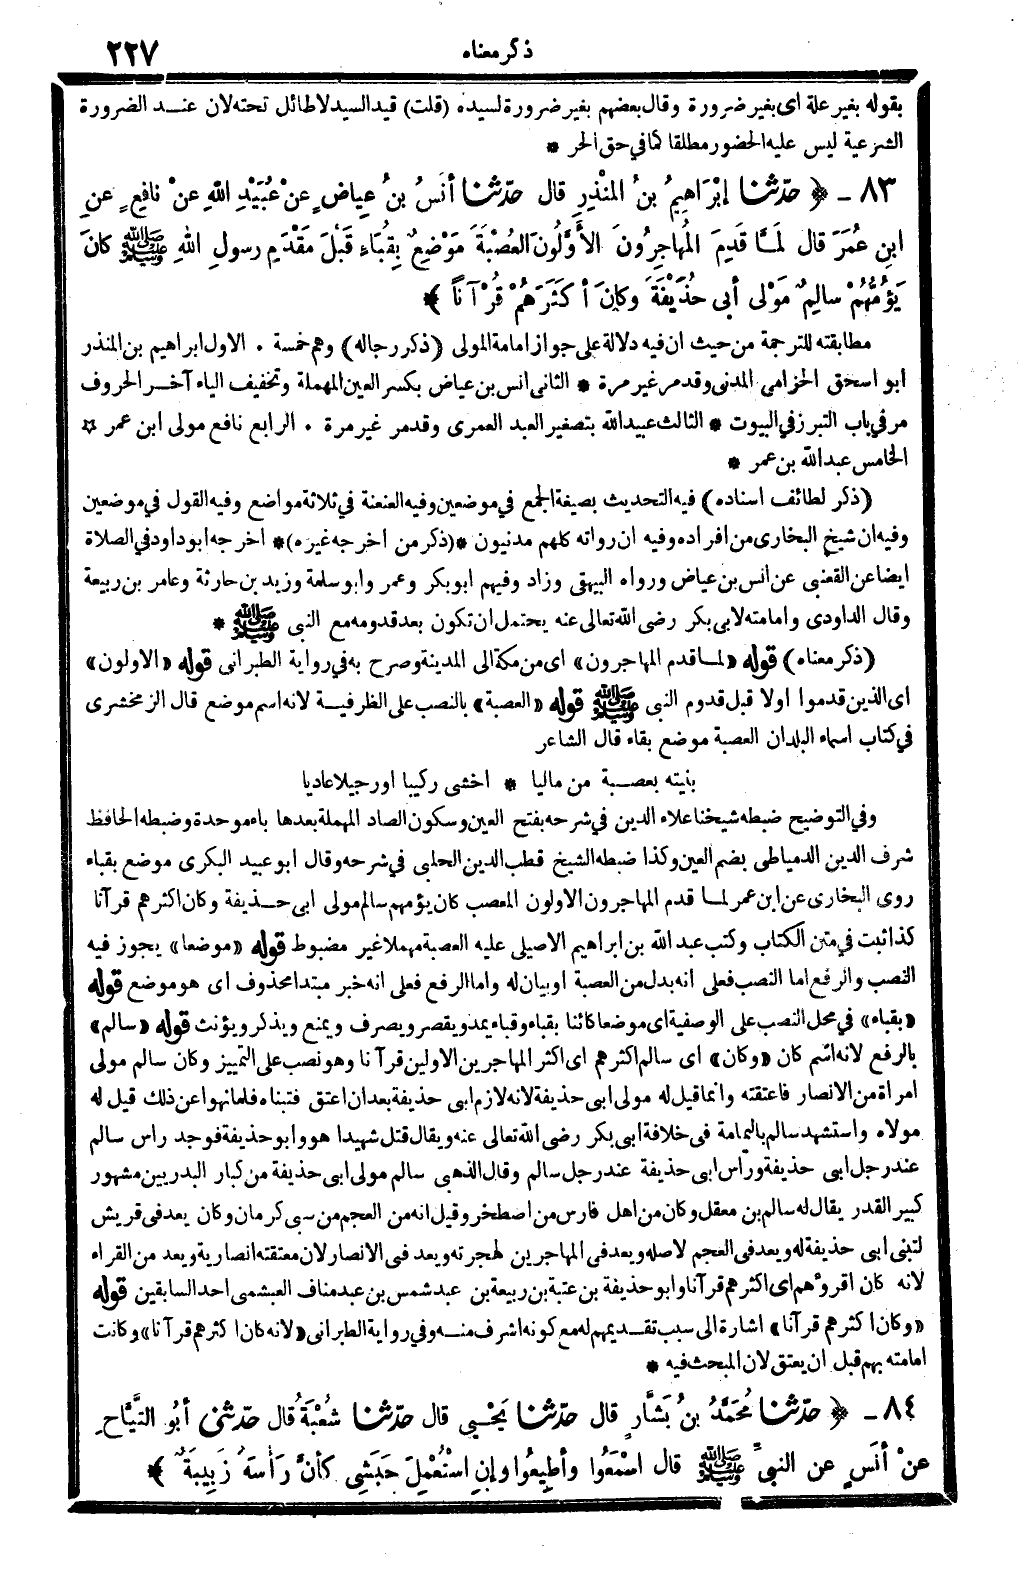 ذكر معناه
٢٢٧
بقوله بغير علة اى بغير ضرورة وقال بعضهم بغير ضرورة لسيده (قلت) قيد السيد لا طائل تحته لان عند الضرورة
الشرعية ليس عليه الحضور مطلقا كما في حق الحر *
٨٣ - ﴿ حدّثنا إبْرَاهِيمُ بنُ المُنْذِرِ قال حدّثنا أنَسُ بنُ عِياضٍ عنْ عُبَيْدِ اللهِ عنْ نافِعٍ عنِ
ابنِ عُمَرَ قال لَمَّا قَدِمَ المُهاجِرُونَ الأَوَّلُونَ العُصْبَةَ مَوْضِعٌ بِقُبَاءٍ قَبْلَ مَقْدَمِ رسولِ اللهِ ﷺ كانَ
يَؤُمُّهُمْ سالِمٌ مَوْلى أبى حُذَيْفَةَ وكانَ أكثَرَهُمْ قُرْآناً ﴾ *
مطابقته للترجمة من حيث ان فيه دلالة على جواز امامة المولى (ذكر رجاله) وهم خمسة . الاول ابراهيم بن المنذر
ابو اسحق الحزامى المدنى وقد مر غير مرة * الثانى انس بن عياض بكسر العين المهملة وتخفيف الياء آخر الحروف
مر في باب التبرز في البيوت * الثالث عبيد الله بتصغير العبد العمرى وقد مر غير مرة . الرابع نافع مولى ابن عمر *
الخامس عبد الله بن عمر *
(ذكر لطائف اسناده) فيه التحديث بصيغة الجمع في موضعين وفيه العنعنة في ثلاثة مواضع وفيه القول في موضعين
وفيه ان شيخ البخارى من افراده وفيه ان رواته كلهم مدنيون *(ذكر من اخرجه غيره)* اخرجه ابو داود في الصلاة
ايضا عن القعنبى عن انس بن عياض ورواه البيهقى وزاد وفيهم ابو بكر وعمر وابو سلمة وزيد بن حارثة وعامر بن ربيعة
وقال الداودى وامامته لابى بكر رضى الله تعالى عنه يحتمل ان تكون بعد قدومه مع النبى ﷺ *
(ذكر معناه) قوله «لما قدم المهاجرون» اى من مكة الى المدينة وصرح به في رواية الطبرانى قوله «الاولون»
اى الذين قدموا اولا قبل قدوم النبى ﷺ قوله «العصبة» بالنصب على الظرفية لانه اسم موضع قال الزمخشرى
في كتاب اسماء البلدان العصبة موضع بقاء قال الشاعر
بنيته بعصبة من ماليا * اخشى ركيبا اورجيلا عاديا
وفي التوضيح ضبطه شيخنا علاء الدين في شرحه بفتح العين وسكون الصاد المهملة بعدها باء موحدة وضبطه الحافظ
شرف الدين الدمياطى بضم العين وكذا ضبطه الشيخ قطب الدين الحلبى في شرحه وقال ابو عبيد البكرى موضع بقباء
روى البخارى عن ابن عمر لما قدم المهاجرون الاولون المعصب كان يؤمهم سالم مولى ابى حذيفة وكان اكثرهم قرآنا
كذا ثبت في متن الكتاب وكتب عبد الله بن ابراهيم الاصيلى عليه العصبة مهملا غير مضبوط قوله «موضعا» يجوز فيه
النصب والرفع اما النصب فعلى انه بدل من العصبة او بيان له واما الرفع فعلى انه خبر مبتدا محذوف اى هو موضع قوله
«بقباء» في محل النصب على الوصفية اى موضعا كائنا بقباء وقباء يمد ويقصر ويصرف ويمنع ويذكر ويؤنث قوله «سالم»
بالرفع لانه اسم كان «وكان» اى سالم اكثرهم اى اكثر المهاجرين الاولين قرآنا وهو نصب على التمييز وكان سالم مولى
امرأة من الانصار فاعتقته وانما قيل له مولى ابى حذيفة لانه لازم ابى حذيفة بعد ان اعتق فتبناه فلما نهوا عن ذلك قيل له
مولاه واستشهد سالم باليمامة فى خلافة ابى بكر رضى الله تعالى عنه ويقال قتل شهيدا هو وابو حذيفة فوجد راس سالم
عند رجل ابى حذيفة ورأس ابى حذيفة عند رجل سالم وقال الذهبى سالم مولى ابى حذيفة من كبار البدريين مشهور
كبير القدر يقال له سالم بن معقل وكان من اهل فارس من اصطخر وقيل انه من العجم من سبى كرمان وكان يعد فى قريش
لتبنى ابى حذيفة له ويعد فى العجم لاصله ويعد فى المهاجرين لهجرته ويعد فى الانصار لان معتقته انصارية ويعد من القراء
لانه كان اقرؤهم اى اكثرهم قرآنا وابو حذيفة بن عتبة بن ربيعة بن عبد شمس بن عبد مناف العبشمى احد السابقين قوله
«وكان اكثرهم قرآنا» اشارة الى سبب تقديمهم له مع كونه اشرف منه وفي رواية الطبرانى «لانه كان اكثرهم قرآنا» وكانت
امامته بهم قبل ان يعتق لان المبحث فيه *
٨٤ - ﴿ حدّثنا مُحَمَّدُ بنُ بَشَّارٍ قال حدّثنا يَحْيى قال حدّثنا شُعْبَةُ قال حدّثنى أبُو التَّيَّاحِ
عنْ أنَسٍ عنِ النبىِّ ﷺ قال اسْمَعُوا وأطِيعُوا وإنِ اسْتُعْمِلَ حَبَشِى كأنَّ رَأسَهُ زَبِيبَةٌ ﴾ *